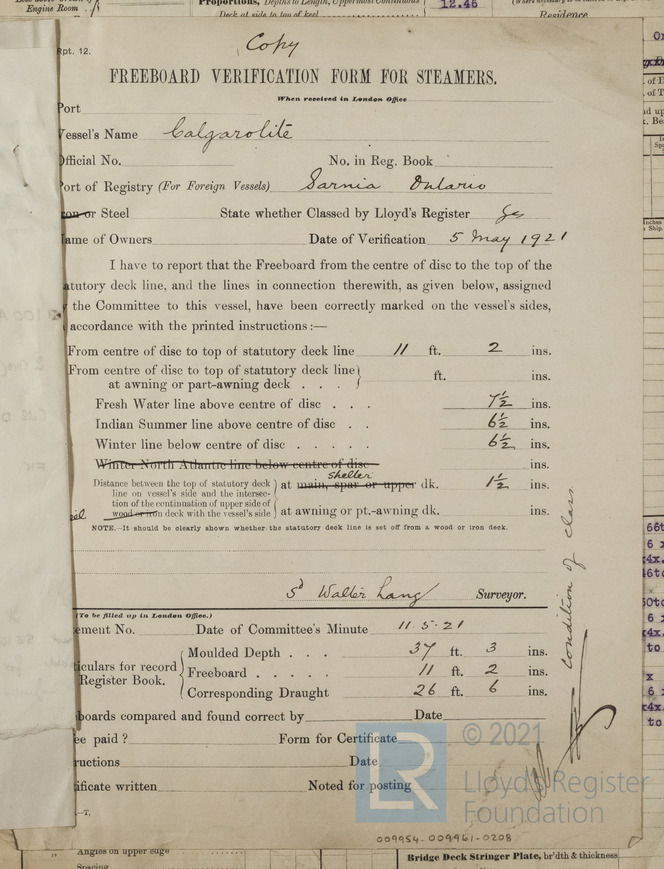 Engine Room
Proportions, Depths to Length, Uppermost Continuous
Deck at side to top of keel
12.46
Residence
Rpt. 12.
Copy
FREEBOARD VERIFICATION FORM FOR STEAMERS.
When received in London Office
Port
Vessel's Name Calgarolite
Official No. No. in Reg. Book
Port of Registry (For Foreign Vessels) Sarnia Ontario
Iron or Steel State whether Classed by Lloyd's Register Yes
Name of Owners Date of Verification 5 May 1921
I have to report that the Freeboard from the centre of disc to the top of the
statutory deck line, and the lines in connection therewith, as given below, assigned
the Committee to this vessel, have been correctly marked on the vessel's sides,
accordance with the printed instructions:—
From centre of disc to top of statutory deck line 11 ft. 2 ins.
From centre of disc to top of statutory deck line
at awning or part-awning deck . . . ft. ins.
Fresh Water line above centre of disc . . . 7½ ins.
Indian Summer line above centre of disc . . 6½ ins.
Winter line below centre of disc . . . . . 6½ ins.
Winter North Atlantic line below centre of disc ins.
shelter
Distance between the top of statutory deck
line on vessel's side and the intersec-
tion of the continuation of upper side of
wood or iron deck with the vessel's side
at main, spar or upper dk. 1½ ins.
at awning or pt.-awning dk. ins.
NOTE.—It should be clearly shown whether the statutory deck line is set off from a wood or iron deck.
Sd Walter Lang Surveyor.
(To be filled up in London Office.)
ement No. Date of Committee's Minute 11.5.21
iculars for record
Register Book.
Moulded Depth . . . 37 ft. 3 ins.
Freeboard . . . . . 11 ft. 2 ins.
Corresponding Draught 26 ft. 6 ins.
boards compared and found correct by Date
ee paid ? Form for Certificate
ructions Date
ificate written Noted for posting
—T.
condition of class
© 2021
LR
Lloyd's Register
Foundation
009954-009961-0208
Angles on upper edge
Spacing
Bridge Deck Stringer Plate, br'dth & thickness